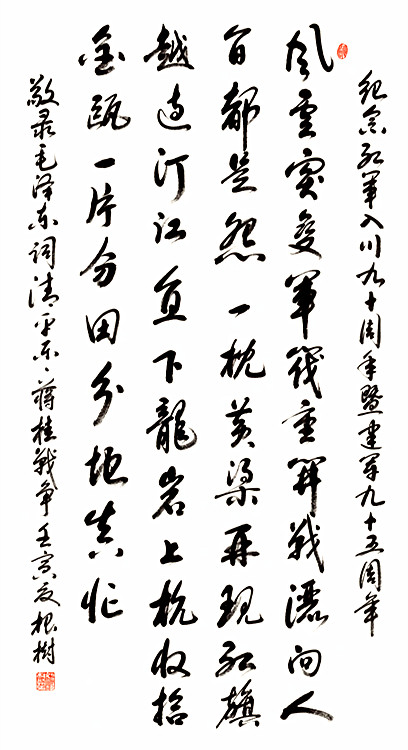 纪念红軍入川九十周年暨建军九十五周年
风雲突變軍閥重開戰灑向人
間都是怨一枕黄粱再现红旗
越过汀江直下龍岩上杭收拾
金瓯一片分田分地真忙
敬录毛泽东词清平乐、蒋桂戰争壬寅夏根樹